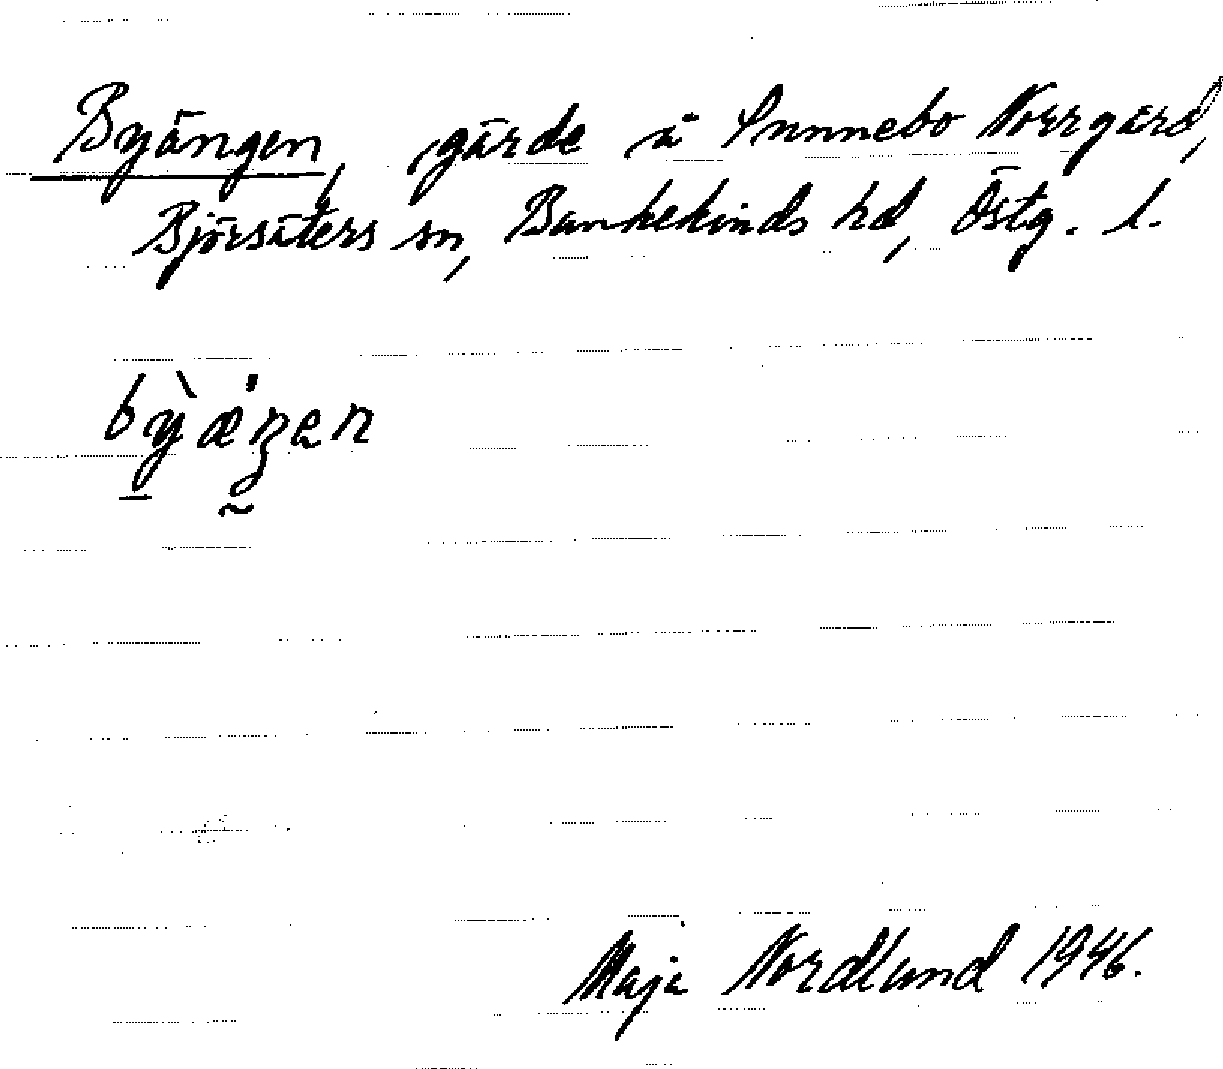 Byängen, gärde å Sunnebo Norrgård,
Björsäters sn, Bankekinds hd, Östg. l.
bỳæŋen
Maja Nordlund 1946.